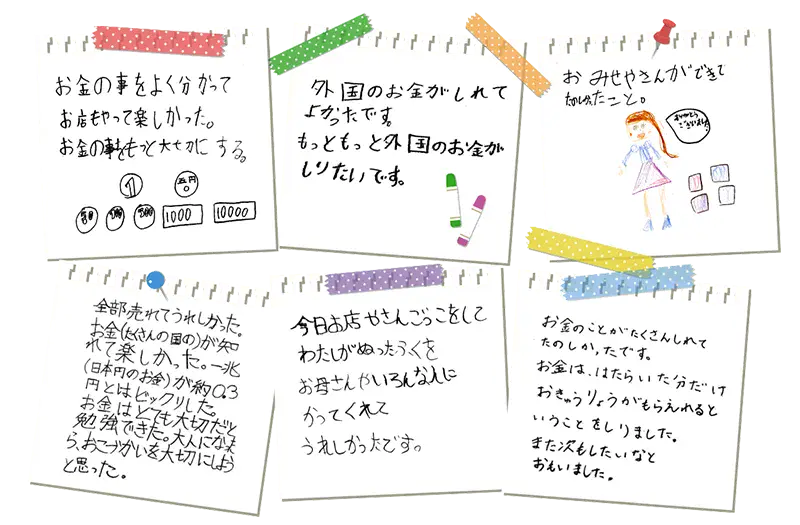 お金の事をよく分かって
お店もやって楽しかった。
お金の事をもっと大切にする。
1
五円
50
100
500
1000
10000
外国のお金がしれて
よかったです。
もっともっと外国のお金が
しりたいです。
おみせやさんができて
たのしかったこと。
ありがとう
ございました
全部売れてうれしかった。
お金(たくさんの国の)が知
れて楽しかった。一兆
(日本円のお金)が約0.3
円とはビックリした。
お金はとても大切だと
勉強できた。大人になった
ら、おこづかいを大切にしよう
と思った。
今日お店やさんごっこをして
わたしがぬったふくを
お母さんやいろんな人に
かってくれて
うれしかったです。
お金のことがたくさんしれて
たのしかったです。
お金は、はたらいた分だけ
おきゅうりょうがもらえれると
いうことをしりました。
また次もしたいなと
おもいました。